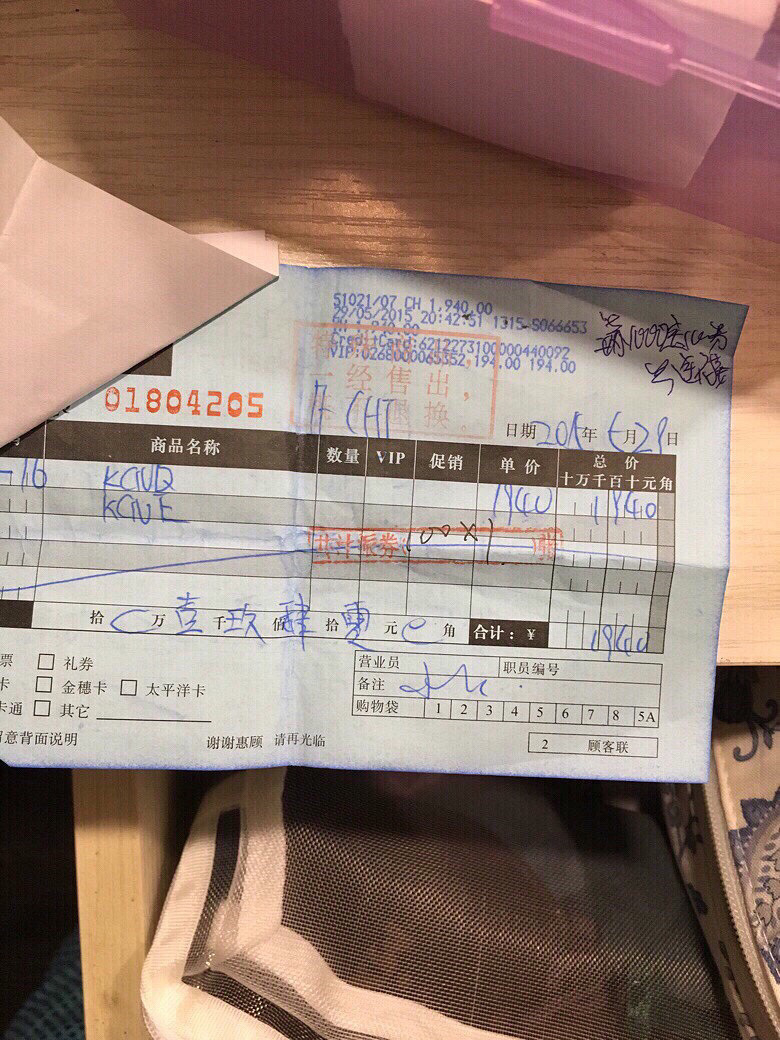 S1021/07 CH 1,940.00
29/05/2015 20:42:51 1315-5066653
CreditCard:6212273100000440092
VIP:0268000065352,194.00 194.00
一经售出，
退换。
01804205
CHI
日期 2015年 5月29日
商品名称 数量 VIP 促销 单价 总价
十万千百十元角
-16 1940 1940
共计派券 100×1 张
拾 万 壹 千 玖 佰 肆 拾 零 元 角 合计：¥ 1940
票 礼券
卡 金穗卡 太平洋卡
卡通 其它
营业员 职员编号
备注
购物袋 1 2 3 4 5 6 7 8 5A
留意背面说明 谢谢惠顾 请再光临
2 顾客联